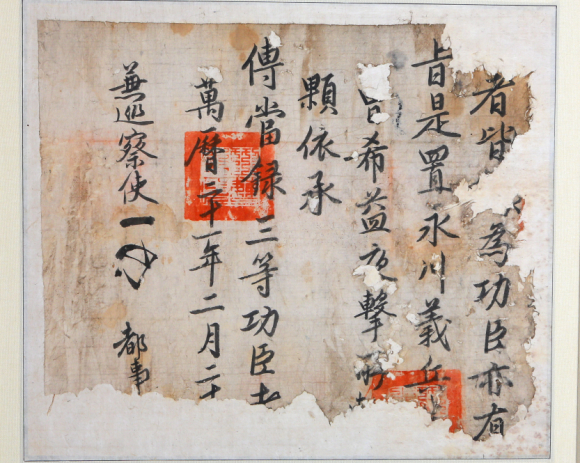 者皆 為功臣亦有
旨是置永川義兵
希益夜擊斬
顆依承
傳當録三等功臣
萬曆二十一年二月二十
兼巡察使 都事